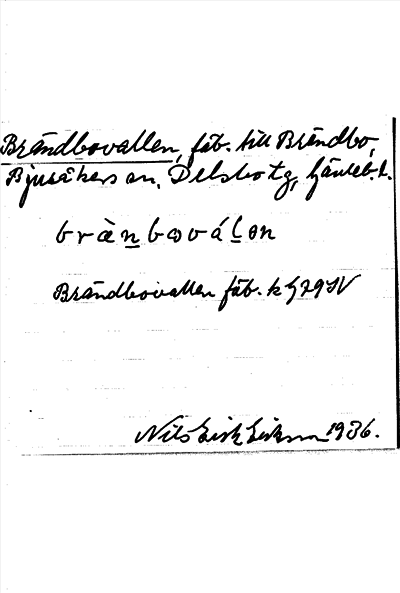 Brändbovallen, fäb. till Brändbo,
Bjuråkers sn, Delsbo tg, Gävleb. l.
bràn̲bωvál̲ən
Brändbovallen fäb. k G79SV
Nils Erik Eriksson 1936.